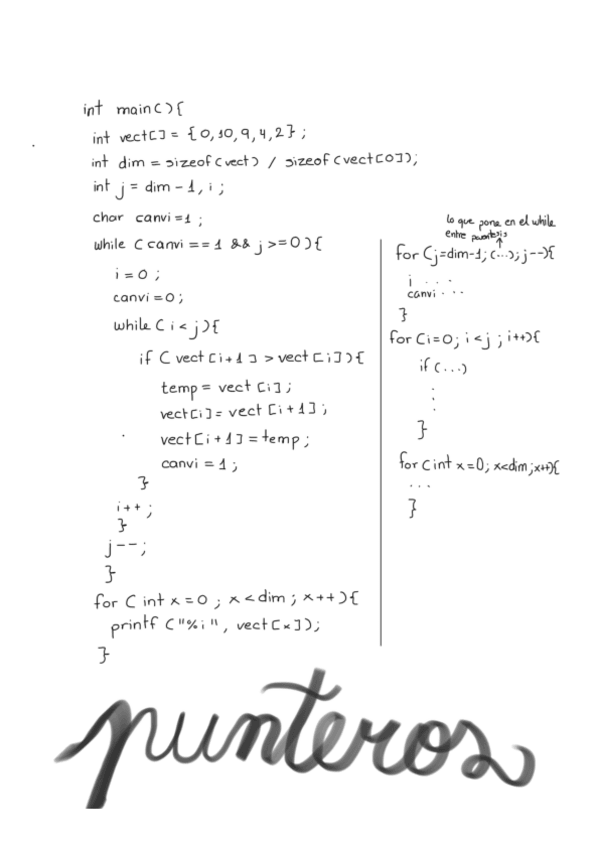 int main(){
int vect[] = {0,10,9,4,2};
int dim = sizeof(vect) / sizeof(vect[0]);
int j = dim - 1, i;
char canvi = 1;
while (canvi == 1 && j >= 0){
i = 0;
canvi = 0;
while (i < j){
if (vect[i+1] > vect[i]){
temp = vect[i];
vect[i] = vect[i+1];
vect[i+1] = temp;
canvi = 1;
}
i++;
}
j--;
}
for (int x = 0; x < dim; x++){
printf ("%i", vect[x]);
}
lo que pone en el while
entre parentesis
for (j=dim-1; (...); j--){
i ...
canvi ...
}
for (i=0; i<j; i++){
if (...)
.
.
.
}
for (int x=0; x<dim; x++){
...
}
punteros